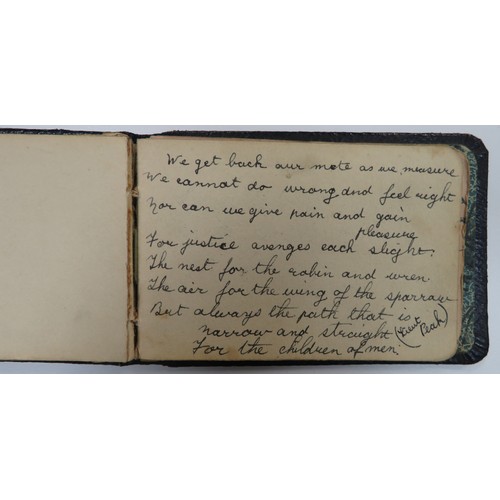 We get back our mete as we measure
We cannot do wrong and feel right
Nor can we give pain and gain
pleasure
For justice avenges each slight.
The nest for the robin and wren.
The air for the wing of the sparrow
But always the path that is
narrow and straight
For the children of men.